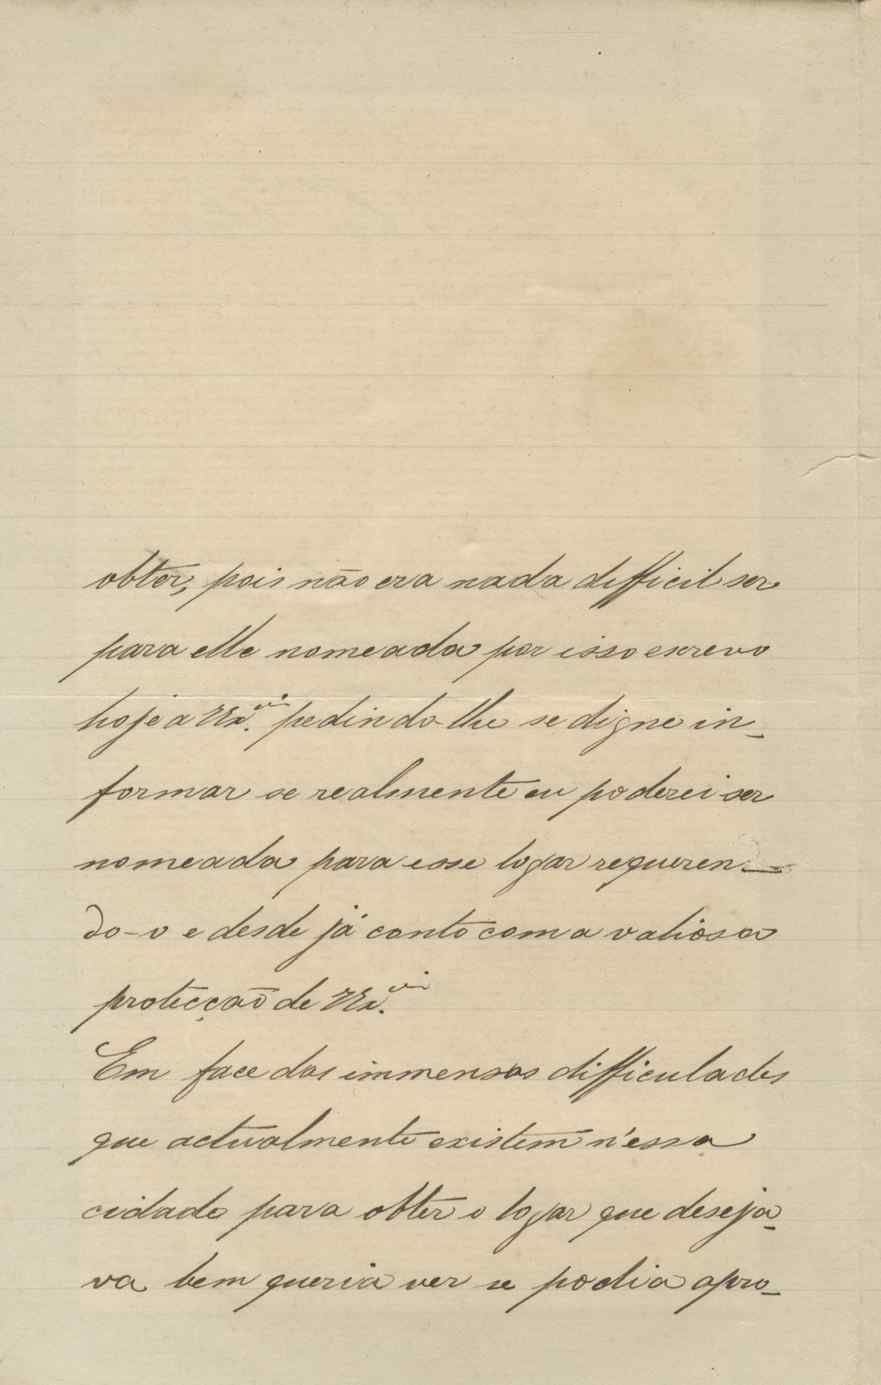 obter, pois não era nada difficil ser
para elle nomeada por isso escrevo
hoje a VEx.cia pedindo-lhe se digne in-
formar se realmente eu poderei ser
nomeada para esse logar requeren-
do-o e desde já conto com a valiosa
protecção de VEx.cia
Em face das immensas difficulades
que actualmente existem n'essa
cidade para obter o logar que deseja-
va bem queria ver se podia apro-